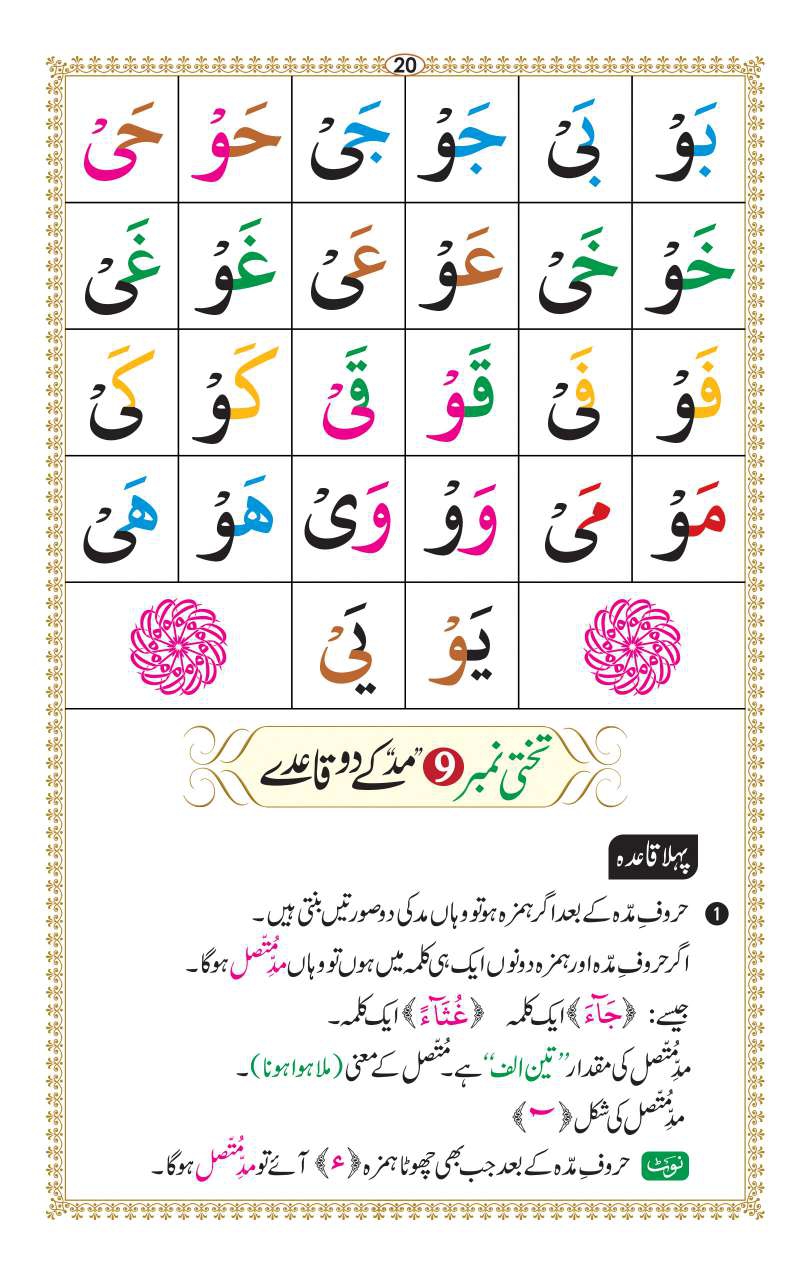 20
بَوْ بَیْ جَوْ جَیْ حَوْ حَیْ
خَوْ خَیْ عَوْ عَیْ غَوْ غَیْ
فَوْ فَیْ قَوْ قَیْ کَوْ کَیْ
مَوْ مَیْ وَوْ وَیْ هَوْ هَیْ
یَوْ یَیْ
تختی نمبر 9 ”مد“ کے دو قاعدے
پہلا قاعدہ
1 حروفِ مدّہ کے بعد اگر ہمزہ ہو تو وہاں مد کی دو صورتیں بنتی ہیں۔
اگر حروفِ مدّہ اور ہمزہ دونوں ایک ہی کلمہ میں ہوں تو وہاں مدِّ مُتّصل ہوگا۔
جیسے: ﴿جَآءَ﴾ ایک کلمہ ﴿غُثَآءً﴾ ایک کلمہ۔
مدِّ مُتّصل کی مقدار ’’تین الف‘‘ ہے۔ مُتّصل کے معنی (ملا ہوا ہونا)۔
مدِّ مُتّصل کی شکل ﴿ ۤ ﴾
نوٹ حروفِ مدّہ کے بعد جب بھی چھوٹا ہمزہ ﴿ء﴾ آئے تو مدِّ مُتّصل ہوگا۔